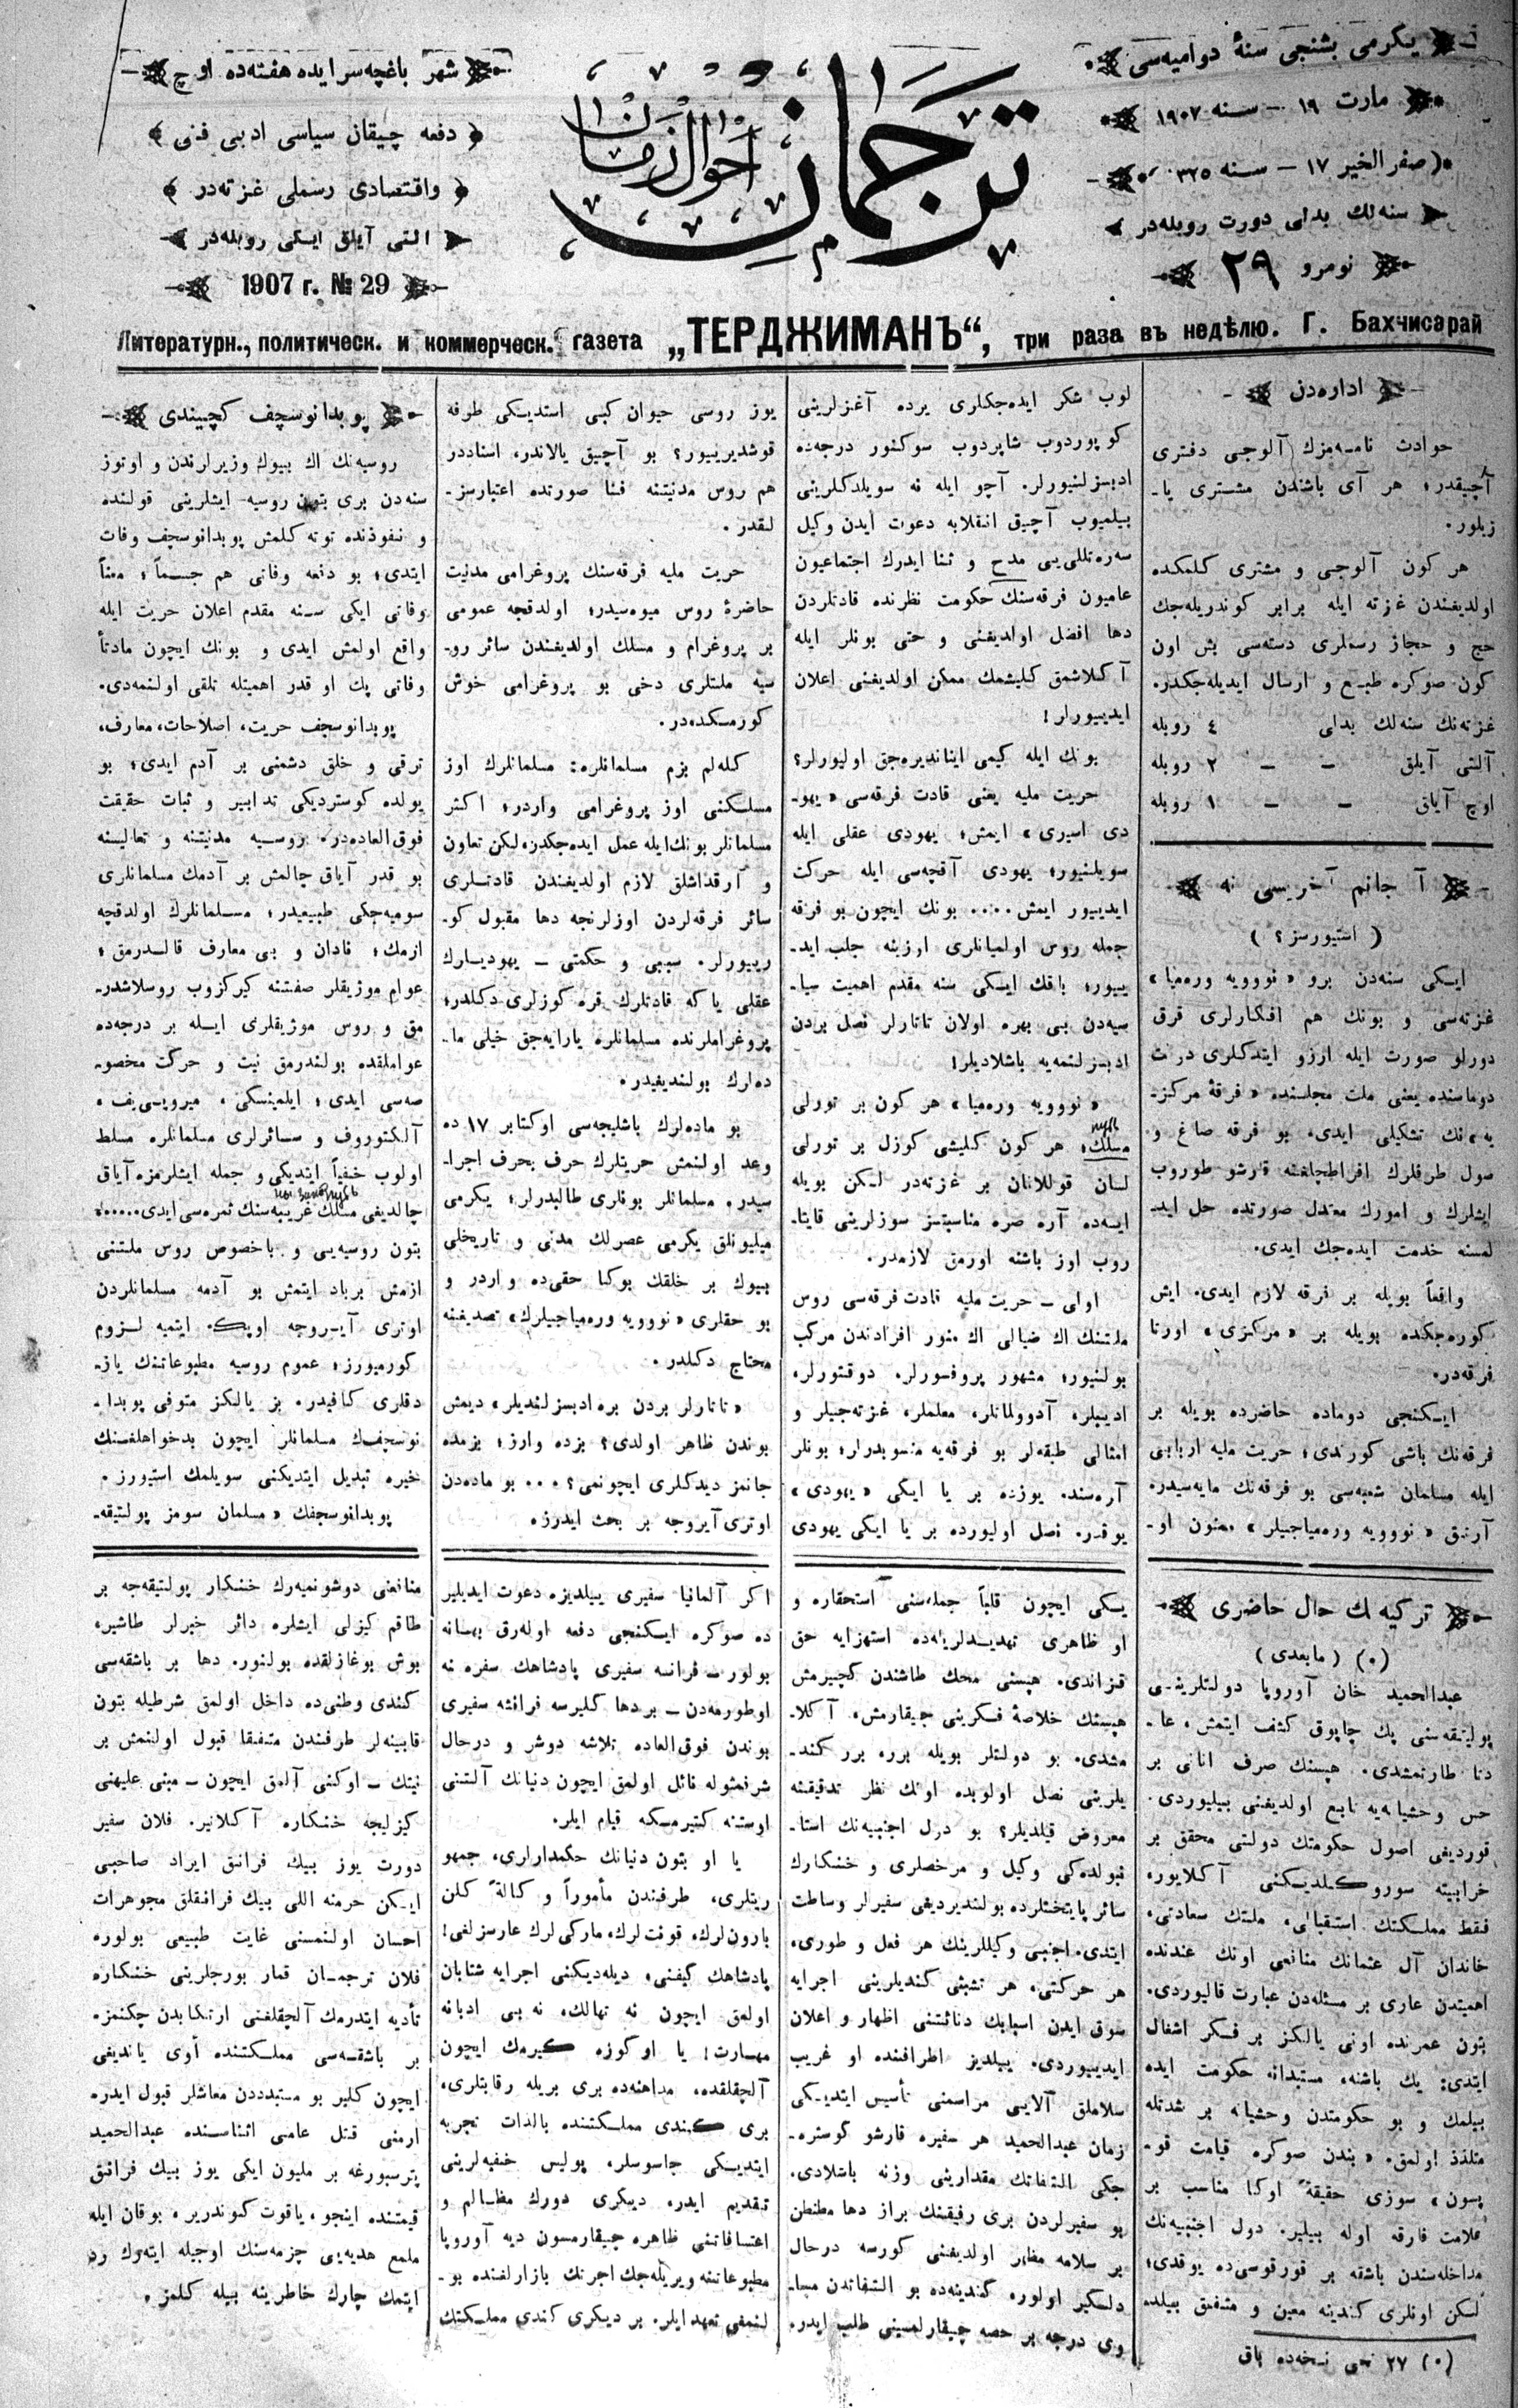 يكرمی بشنجی سنۀ دواميه‌سی
مارت ١٩ — سنه ١٩٠٧
صفر الخير ١٧ — سنه ٣٢٥
سنه‌لك بدلی دورت روبله‌در
نومرو ٢٩
ترجمان
احوال زمان
شهر باغچه‌سرايده هفته‌ده اوچ
دفعه چيقان سياسی ادبی فنی
واقتصادی رسملی غزته‌در
التی آيلق ايكی روبله‌در
1907 г. № 29
Литературн., политическ. и коммерческ. газета „ТЕРДЖИМАНЪ“, три раза въ недѣлю. Г. Бахчисарай
اداره‌دن
حوادث نامه‌مزك آلوجی دفتری
آچيقدر؛ هر آی باشندن مشتری يا-
زيلور.
هر كون آلوجی و مشتری كلمكده
اولديغندن غزته ايله برابر كوندريله‌جك
حج و حجاز رسملری دسته‌سی بش اون
كون صوكره طبع و ارسال ايديله‌جكدر.
غزته‌نك سنه‌لك بدلی ٤ روبله
آلتی آيلق — — ٢ روبله
اوچ آياق — — ١ روبله
آ جانم آخريسی نه
( استيورسز؟ )
ايكی سنه‌دن برو «نوويه وره‌ميا»
غزته‌سی و بونك هم افكارلری قرق
دورلو صورت ايله ارزو ايتدكلری درت
دوماسنده يعنی ملت مجلسنده «فرقۀ مركز-
يه»نك تشكيلی ايدی. بو فرقه صاغ و
صول طرفلرك افراطچلغنه قارشو طوروب
ايشلرك و امورك معتدل صورتده حل ايد-
لمسنه خدمت ايده‌جك ايدی.
واقعاً بويله بر فرقه لازم ايدی. ايش
كوره‌جكده بويله بر «مركزی» اورتا
فرقه‌در.
ايكنجی دوماده حاضرده بويله بر
فرقه‌نك باشی كورندی؛ حريت مليه اربابی
ايله مسلمان شعبه‌سی بو فرقه‌نك مايه‌سيدر.
آرتق «نوويه وره‌مياجيلر» ممنون او-
لوب شكر ايده‌جكلری يرده آغزلرينی
كوپوردوب شاپردوب سوكنور درجه‌ده
ادبسزلنيورلر. آچو ايله نه سويلدكلرينی
بيلميوب آچيق انقلابه دعوت ايدن وكيل
سه‌ره‌تللی‌يی مدح و ثنا ايدرك اجتماعيون
عاميون فرقه‌سنك حكومت نظرنده قادتلردن
دها افضل اولديغنی و حتی بونلر ايله
آكلاشمق كليشمك ممكن اولديغنی اعلان
ايديورلر!
بونك ايله كيمی اينانديره‌جق اوليورلر؟
حريت مليه يعنی قادت فرقه‌سی «يهو-
دی اسيری» ايمش؛ يهودی عقلی ايله
سويلنيور؛ يهودی آقچه‌سی ايله حركت
ايديور ايمش.... بونك ايچون بو فرقه
جمله روس اولميانلری اوزينه جلب ايد-
ييور؛ باقك ايكی سنه مقدم اهميت سيا-
سيه‌دن بی بهره اولان تاتارلر نصل بردن
ادبسزلنمه‌يه باشلاديلر!
«نوويه وره‌ميا» هر كون بر تورلی
مسلك؛ هر كون كليشی كوزل بر تورلی
لسان قوللانان بر غزته‌در ليكن بويله
ايسه‌ده آره صره مناسبتسز سوزلرينی قايتا-
روب اوز باشنه اورمق لازمدر.
اولی — حريت مليه قادت فرقه‌سی روس
ملتنك اك ضيالی اك منور افرادندن مركب
بولنيور؛ مشهور پروفسورلر، دوقتورلر،
اديبلر، آدوولمانلر، معلملر، غزته‌جيلر و
امثالی طبقه‌لر بو فرقه‌يه منسوبدرلر؛ بونلر
آره‌سنده يوزده بر يا ايكی «يهودی»
يوقدر. نصل اوليورده بر يا ايكی يهودی
يوز روسی حيوان كبی استديكی طرفه
قوشديرييور؟ بو آچيق يالاندر، اسناددر
هم روس مدنيتنه فنا صورتده اعتبارسز-
لقدر.
حريت مليه فرقه‌سنك پروغرامی مدنيت
حاضرۀ روس ميوه‌سيدر؛ اولدقجه عمومی
بر پروغرام و مسلك اولديغندن سائر رو-
سيه ملتلری دخی بو پروغرامی خوش
كورمكده‌در.
كله‌لم بزم مسلمانلره: مسلمانلرك اوز
مسلكی اوز پروغرامی واردر؛ اكثر
مسلمانلر بونك‌ايله عمل ايده‌جكدر، ليكن تعاون
و آرقداشلق لازم اولديغندن قادتلری
سائر فرقه‌لردن اوزلرنجه دها مقبول كو-
ريیورلر. سببی و حكمتی — يهوديلرك
عقلی يا كه قادتلرك قره كوزلری دكلدر؛
پروغراملرنده مسلمانلره يارايه‌جق خيلی ما-
ده‌لرك بولنديغيدر.
بو ماده‌لرك باشليجه‌سی اوكتابر ١٧ ده
وعد اولنمش حريتلرك حرف بحرف اجرا-
سيدر. مسلمانلر بونلری طالبدرلر؛ يكرمی
ميليونلق يكرمی عصرلك مدنی و تاريخلی
بيوك بر خلقك بوكا حقی‌ده واردر و
بو حقلری «نوويه وره‌مياجيلرك» تصديقنه
محتاج دكلدر.
«تاتارلر بردن بره ادبسزلنديلر» ديمش
بوندن ظاهر اولدی؟ بزده وارز؛ بزمده
جانمز ديدكلری ايچونمی؟... بو ماده‌دن
اوتری آيروجه بر بحث ايدرز.
پوبدانوسچف كچيندی
روسيه‌نك اك بيوك وزيرلرندن و اوتوز
سنه‌دن بری بتون روسيه ايشلرينی قولنده
و نفوذنده توته كلمش پوبدانوسچف وفات
ايتدی؛ بو دفعه وفاتی هم جسماً؛ معناً
وفاتی ايكی سنه مقدم اعلان حريت ايله
واقع اولمش ايدی و بونك ايچون مادتاً
وفاتی پك او قدر اهميتله تلقی اولنمه‌دی.
پوبدانوسچف حريت، اصلاحات، معارف،
ترقی و خلق دشمنی بر آدم ايدی؛ بو
يولده كوسترديكی تدابير و ثبات حقيقت
فوق‌العاده‌در. روسيه مدنيتنه و تعاليسنه
بو قدر آياق چالمش بر آدمك مسلمانلری
سوميه‌جكی طبيعيدر؛ مسلمانلرك اولدقچه
ازمك؛ نادان و بی معارف قالدرمق؛
عوام موژيقلر صفتنه كيركزوب روسلاشدر-
مق و روس موژيقلری ايله بر درجه‌ده
عواملقده بولندرمق نيت و حركت مخصو-
صه‌سی ايدی؛ ايلمينسكی، ميروپی‌يف،
آلكتوروف و سائرلری مسلمانلره مسلط
اولوب خفياً ايتديكی و جمله ايشلرمزه آياق
چالديغی مسلك غريبه‌سنك ثمره‌سی ايدی.....
بتون روسيه‌يی و باخصوص روس ملتنی
ازمش برباد ايتمش بو آدمه مسلمانلردن
اوتری آيروجه اوپكه ايتميه لزوم
كورميورز؛ عموم روسيه مطبوعاتنك ياز-
دقلری كافيدر. بز يالكز متوفی پوبدا-
نوسچفك مسلمانلر ايچون بدخواهلغنك
خيره تبديل ايتديكنی سويلمك استيورز.
پوبدانوسچفك «مسلمان سومز پولتيقه-
تركيه‌نك حال حاضری
(٠) ( مابعدی )
عبدالحميد خان آوروپا دولتلرينی
پولتيقه‌سنی پك چاپوق كشف ايتمش، عا-
دتا طارتمشدی. هپسنك صرف انانی بر
حس وحشيانه‌يه تابع اولديغنی بيليوردی.
قورديغی اصول حكومتك دولتی محقق بر
خرابيته سوروكلديكنی آكلايور،
فقط مملكتك استقبالی، ملتك سعادتی،
خاندان آل عثمانك منافعی اونك عندنده
اهميتدن عاری بر مسئله‌دن عبارت قاليوردی.
بتون عمرنده اونی يالكز بر فكر اشغال
ايتدی: يك باشنه، مستبدانه حكومت ايده
بيلمك و بو حكومتدن وحشيانه بر شدتله
متلذذ اولمق. «بندن صوكره قيامت قو-
پسون» سوزی حقيقة ًاوكا مناسب بر
علامت فارقه اوله بيلير. دول اجنبيه‌نك
مداخله‌سندن باشقه بر قورقوسی‌ده يوقدی؛
لكن اونلری كندينه معين و متفق بيلد-
(٠) ٢٧ نجی نسخه‌ده باق
يكی ايچون قلباً جمله‌سنی استحقاره و
او ظاهری تهديدلرينه‌ده استهزايه حق
قزاندی. هپسنی محك طاشندن كچيرمش
هپسنك خلاصۀ فكرينی چيقارمش، آكلا-
مشدی. بو دولتلر بويله برر، برر كند-
يلرينی نصل اولوبده اونك نظر تدقيقنه
معروض قيلديلر؟ بو دول اجنبيه‌نك استا-
نبولده‌كی وكيل و مرخصلری و خنكارك
سائر پايتختلرده بولنديرديغی سفيرلر وساطت
ايتدی. اجنبی وكيللرينك هر فعل و طوری،
هر حركتی، هر تشبثی كنديلرينی اجرايه
سوق ايدن اسبابك دنائتنی اظهار و اعلان
ايدييوردی. ييلديز اطرافنده او غريب
سلاملق آلايی مراسمنی تأسيس ايتديكی
زمان عبدالحميد هر سفيره قارشو كوستره-
جكی التفاتك مقدارينی وزنه باشلادی.
بو سفيرلردن بری رفيقنك براز دها مطنطن
بر سلامه مظهر اولديغنی كورسه درحال
دلكير اولور، كندينه‌ده بو التفاتدن مسا-
وی درجه بر حصه چيقارلمسينی طلب ايدر.
اكر آلمانيا سفيری ييلديزه دعوت ايديلير
ده صوكره ايكنجی دفعه اوله‌رق بهانه
بولور — فرانسه سفيری پادشاهك سفره نه
اوطورمه‌دن — بردها كليرسه فرانسه سفيری
بوندن فوق‌العاده تلاشه دوشر و درحال
شرفمثوله نائل اولمق ايچون دنيانك آلتنی
اوستنه كتيرمكه قيام ايلر.
يا او بتون دنيانك حكمدارلری، جمهو
ريتلری، طرفيندن مأموراً و كالة ًكلن
بارون‌لرك، قونت‌لرك، ماركی‌لرك عارسزلغی!
پادشاهك كيفنی، ديله‌ديكنی اجرايه شتابان
اولمق ايچون نه تهالك، نه بی ادبانه
مهارت! يا او كوزه كيرمك ايچون
آلچقلقده، مداهنه‌ده بری بريله رقابتلری،
بری كندی مملكتنده بالذات تجربه
ايتديكی جاسوسلر، پوليس خفيه‌لرينی
تقديم ايدر، ديكری دورك مظالم و
اعتسافاتنی ظاهره چيقارمسون ديه آوروپا
مطبوعاتنه ويريله‌جك اجرتك بازارلغنده بو-
لنمغی تعهد ايلر. بر ديكری كندی مملكتك
منافعنی دوشونميه‌رك خنكار پولتيقه‌جه بر
طاقم كيزلی ايشلره دائر خبرلر طاشير،
بوش بوغازلقده بولنور. دها بر باشقه‌سی
كندی وطنی‌ده داخل اولمق شرطيله بتون
قابينه‌لر طرفندن متفقا قبول اولنمش بر
نيتك — اوكنی آلمق ايچون — مبنی عليهنی
كيزليجه خنكاره آكلاتير. فلان سفير
دورت يوز بيك فرانق ايراد صاحبی
ايكن حرمنه اللی بيك فرانقلق مجوهرات
احسان اولنمسنی غايت طبيعی بولور.
فلان ترجمان قمار بورجلرينی خنكاره
تأديه ايتدرمك آلچقلغنی ارتكابدن چكنمز.
بر باشقه‌سی مملكتنده أوی يانديغی
ايچون كلير بو مستبددن معاشلر قبول ايدر.
ارمنی قتل عامی اثناسنده عبدالحميد
پترسبورغه بر مليون ايكی يوز بيك فرانق
قيمتنده اينجو، ياقوت كوندرير، بو قان ايله
ملمع هديه‌يی چزمه‌سنك اوجيله ايته‌رك رد
ايتمك چارك خاطرينه بيله كلمز.